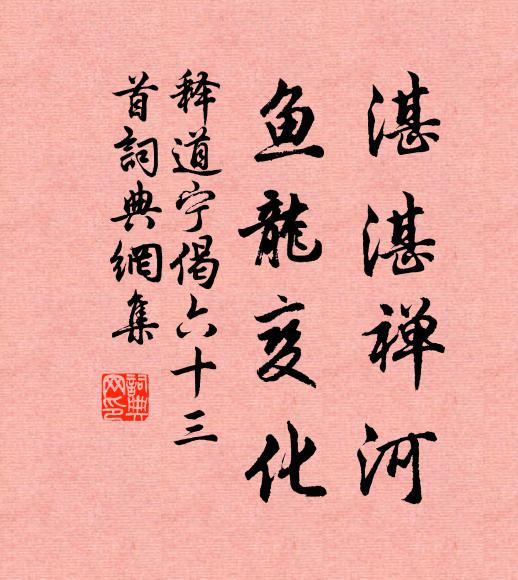 湛湛禅河
鱼龍变化
释道宁偈六十三
首詞典網集
詞典
网印